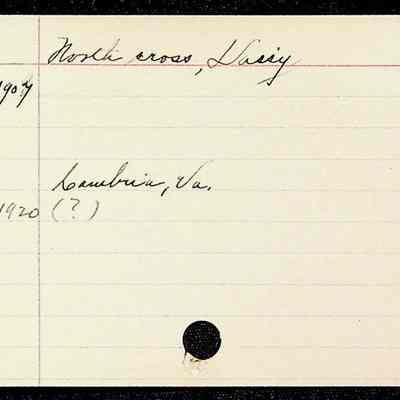 North cross, Daisy
1907
Cambria, Va.
1920 (?)